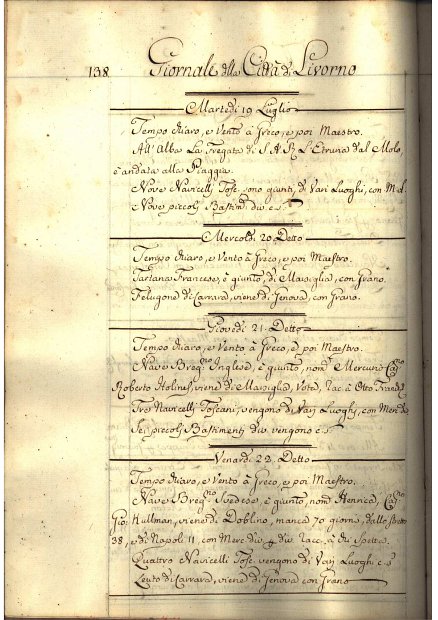 138 Giornale della Città di Livorno
Martedì 19 Luglio
Tempo chiaro, e Vento à Greco, e poi Maestro.
All'Alba La Fregata di S. A. R. L'Etruria dal Molo,
è andata alla Piaggia.
Nove Navicelli Tosc. sono giunti, di Varj Luoghi, con M.
Nove piccoli Bastim. div. c. s.
Mercoldì 20 Detto
Tempo chiaro, e Vento à Greco, e poi Maestro.
Tartana Francese, è giunto, di Marsiglia, con Grano.
Felugone di Carrara, viene di Genova, con Grano.
Giovedì 21 Detto
Tempo chiaro, e Vento à Greco, e poi Maestro.
Nave Breg.no Inglese, è giunto, nom. Mercurio Ca.no
Roberto Holmes, viene di Marsiglia, Vota, Racc. à Otto Frank
Tre Navicelli Toscani, vengono di Varj Luoghj, con Merc. div.
Sei piccoli Bastimenti div. vengono c. s.
Venardì 22 Detto
Tempo chiaro, e Vento à Greco, e poi Maestro.
Nave Breg.no Svedese, è giunto, nom. Henrica, Ca.no
Gio. Kullman, viene di Doblino, manca 70 giorni, dallo
38, e di Napoli 11, con Merc. div. Racc. à chi Spetta.
Quattro Navicelli Tosc. vengono di Varj Luoghi c. s.
Leuto di Carrara, viene di Genova con Grano